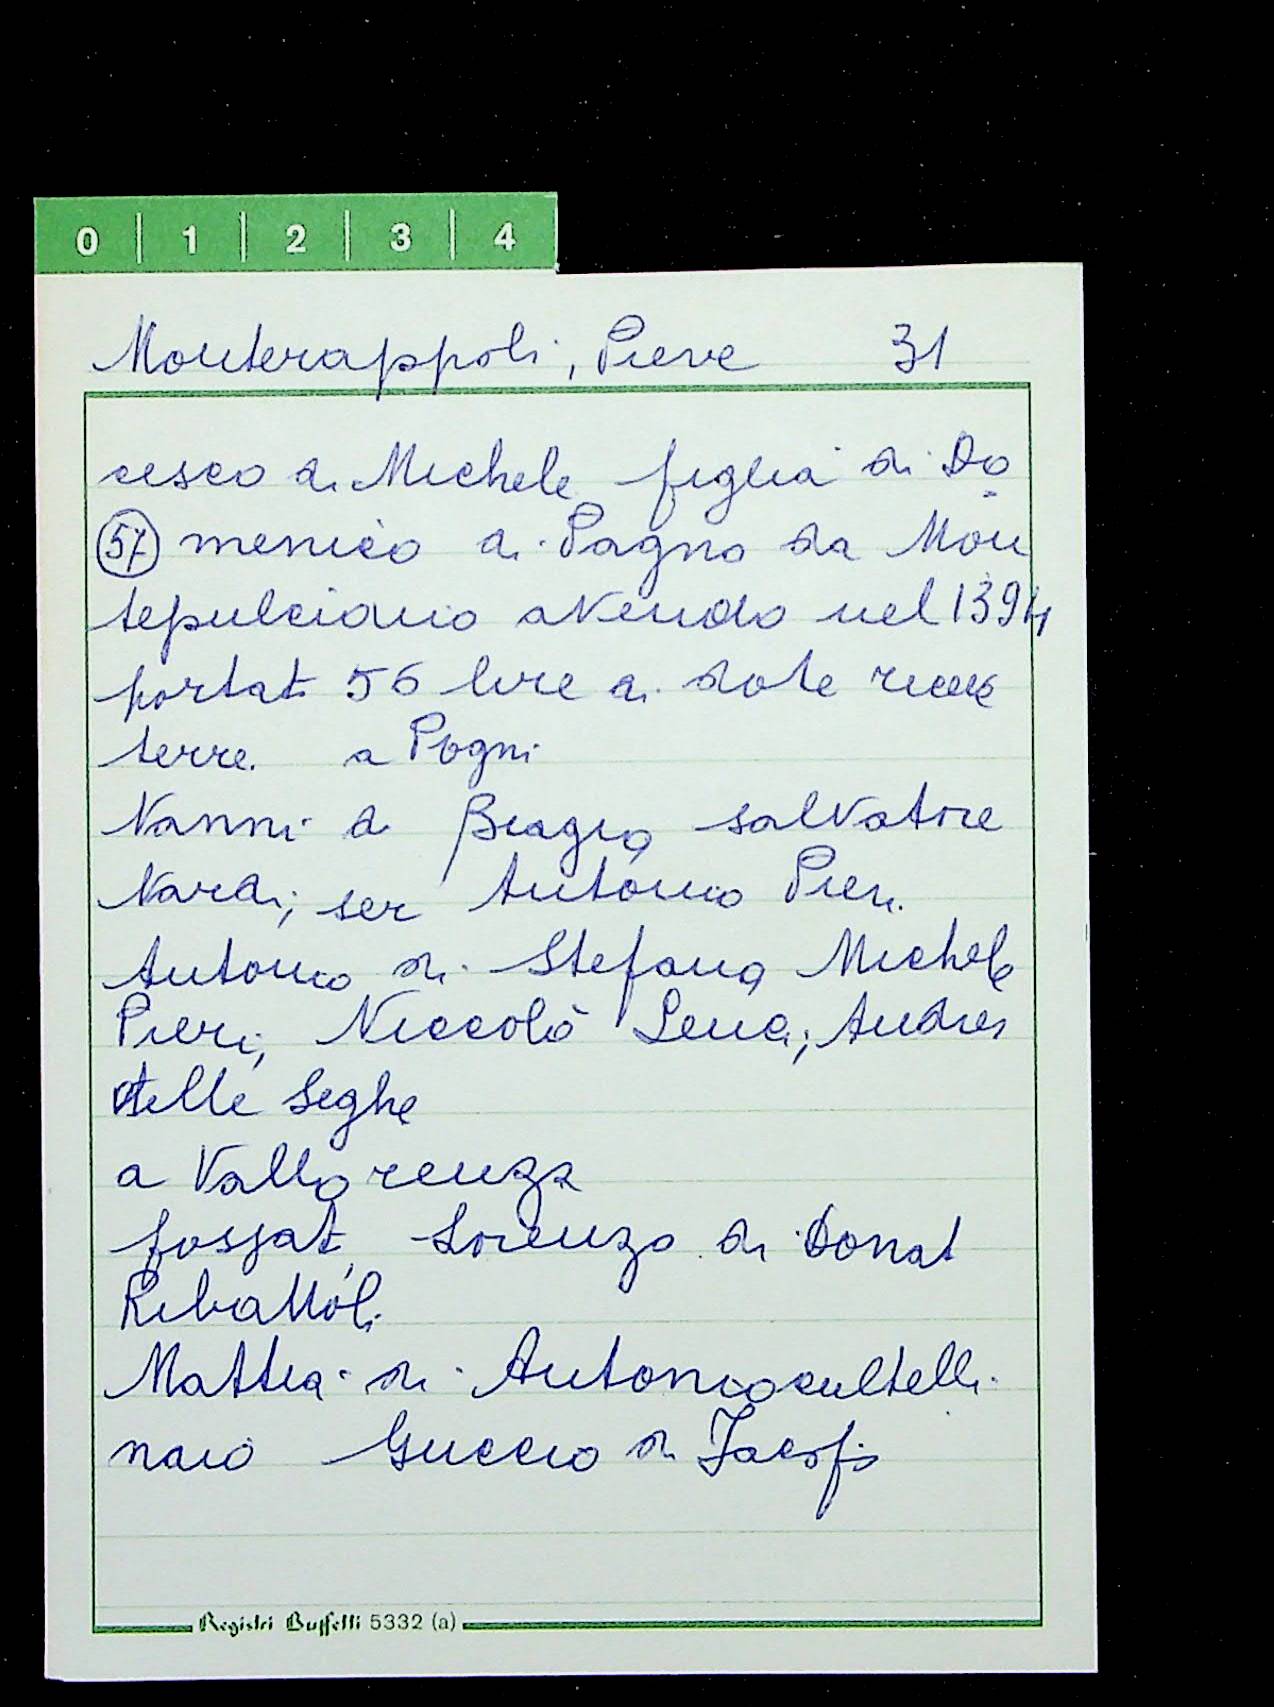 0 | 1 | 2 | 3 | 4
Monterappoli, Pieve 31
cesco di Michele figlia di Do
57 menico di Pagno da Mon
tepulciano avendo nel 1394
portat 56 lire di dote riceve
terre. a Pogni
Nanni di Biagio, Salvatore
Nardi; ser Antonio Pieri.
Antonio di Stefano, Michele
Pieri; Niccolò Lenci; Andrea
delle Seghe
a Vallorenza
fossat, Lorenzo di Donat
Ribaldoli
Mattia di Antonio cultelli
naio Guccio di Jacopo
Registri Buffetti 5332 (a)